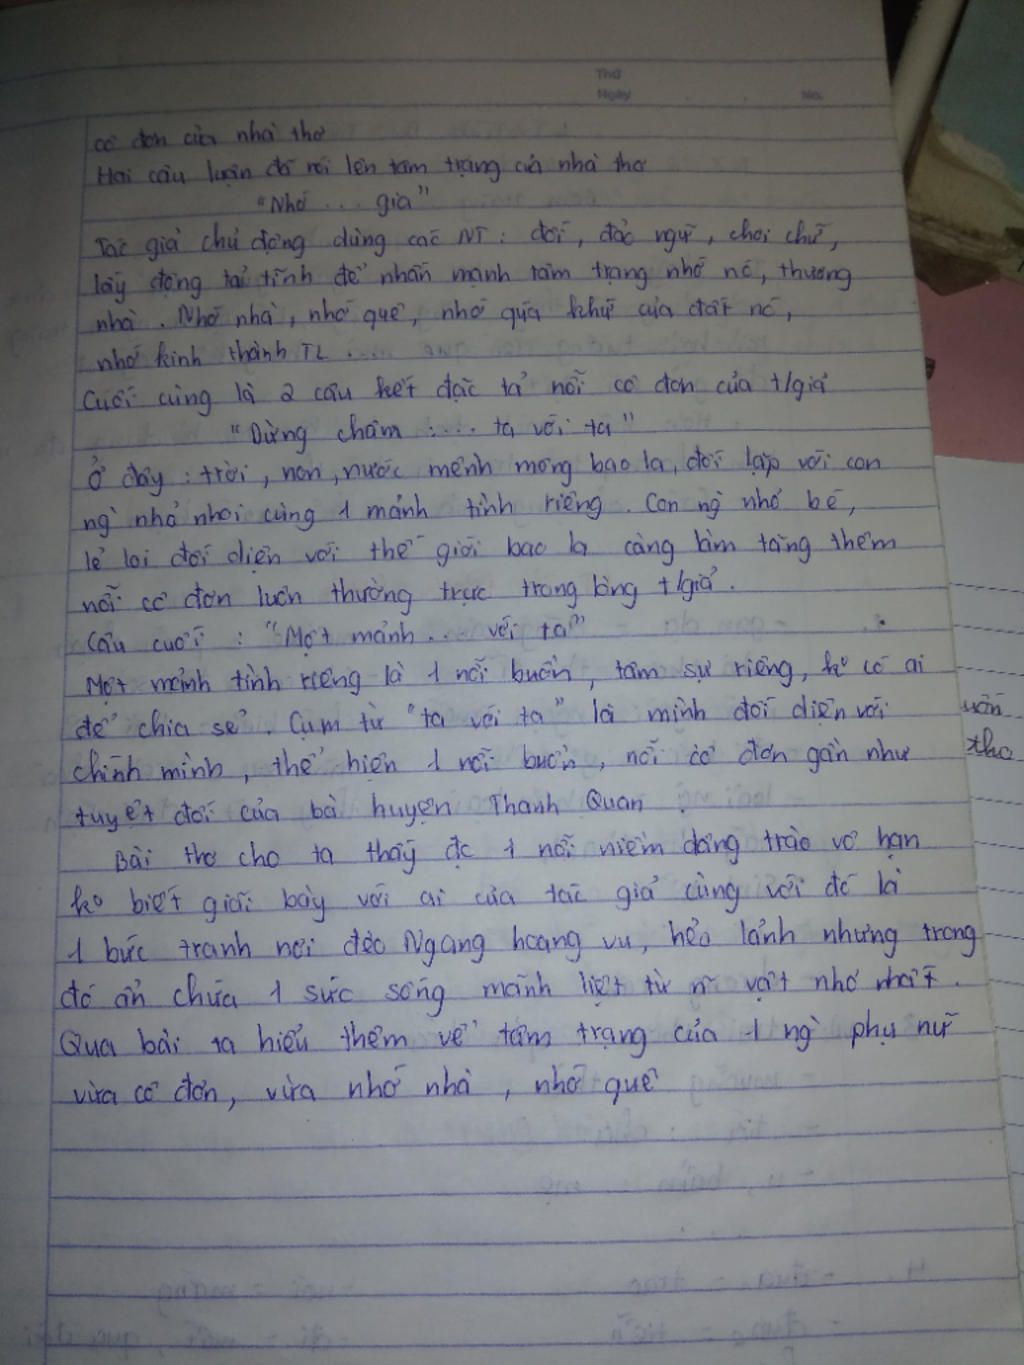 Thứ
Ngày No.
cô đơn của nhà thơ
Hai câu luận đã nói lên tâm trạng của nhà thơ
"Nhớ ... gia"
Tác giả chủ động dùng các NT : đối, đảo ngữ, chơi chữ,
lấy động tả tĩnh để nhấn mạnh tâm trạng nhớ nc, thương
nhà. Nhớ nhà, nhớ quê, nhớ qúa khứ của đất nc,
nhớ kinh thành TL.
Cuối cùng là 2 câu kết đặc tả nỗi cô đơn của t/giả
"Dừng chân :... ta với ta"
Ở đây : trời, non, nước mênh mông bao la, đối lập với con
ng` nhỏ nhoi cùng 1 mảnh tình riêng. Con ng` nhỏ bé,
lẻ loi đối diện với thế giới bao la càng làm tăng thêm
nỗi cô đơn luôn thường trực trong lòng t/giả.
Câu cuối : "Một mảnh... với ta"
Một mảnh tình riêng là 1 nỗi buồn, tâm sự riêng, ko có ai
để chia sẻ. Cụm từ "ta với ta" là mình đối diện với
chính mình, thể hiện 1 nỗi buồn, nỗi cô đơn gần như
tuyệt đối của bà huyện Thanh Quan
Bài thơ cho ta thấy đc 1 nỗi niềm dâng trào vô hạn
ko biết giãi bày với ai của tác giả cùng với đó là
1 bức tranh nơi đèo Ngang hoang vu, hẻo lánh nhưng trong
đó ẩn chứa 1 sức sống mãnh liệt từ n~ vật nhỏ nhất.
Qua bài ta hiểu thêm về tâm trạng của 1 ng` phụ nữ
vừa cô đơn, vừa nhớ nhà, nhớ quê